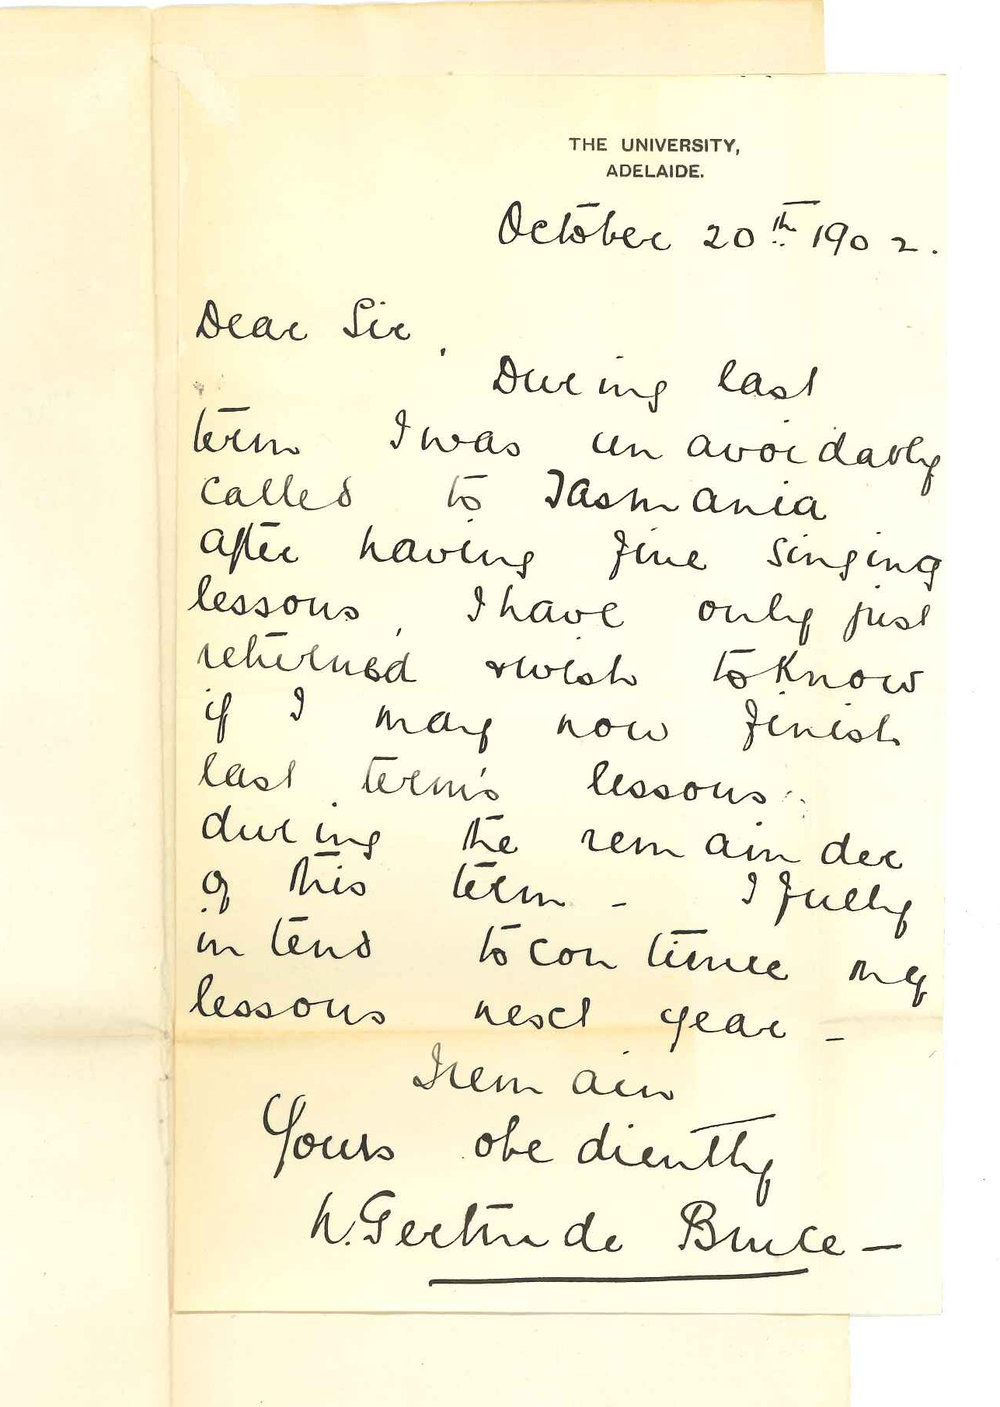 THE UNIVERSITY,
ADELAIDE.
October 20th 1902.
Dear Sir,
During last
term I was unavoidably
called to Tasmania
after having five singing
lessons, I have only just
returned & wish to know
if I may now finish
last term's lessons
during the remainder
of this term - I fully
intend to continue my
lessons next year -
I remain
Yours obediently
Gertrude Bruce -